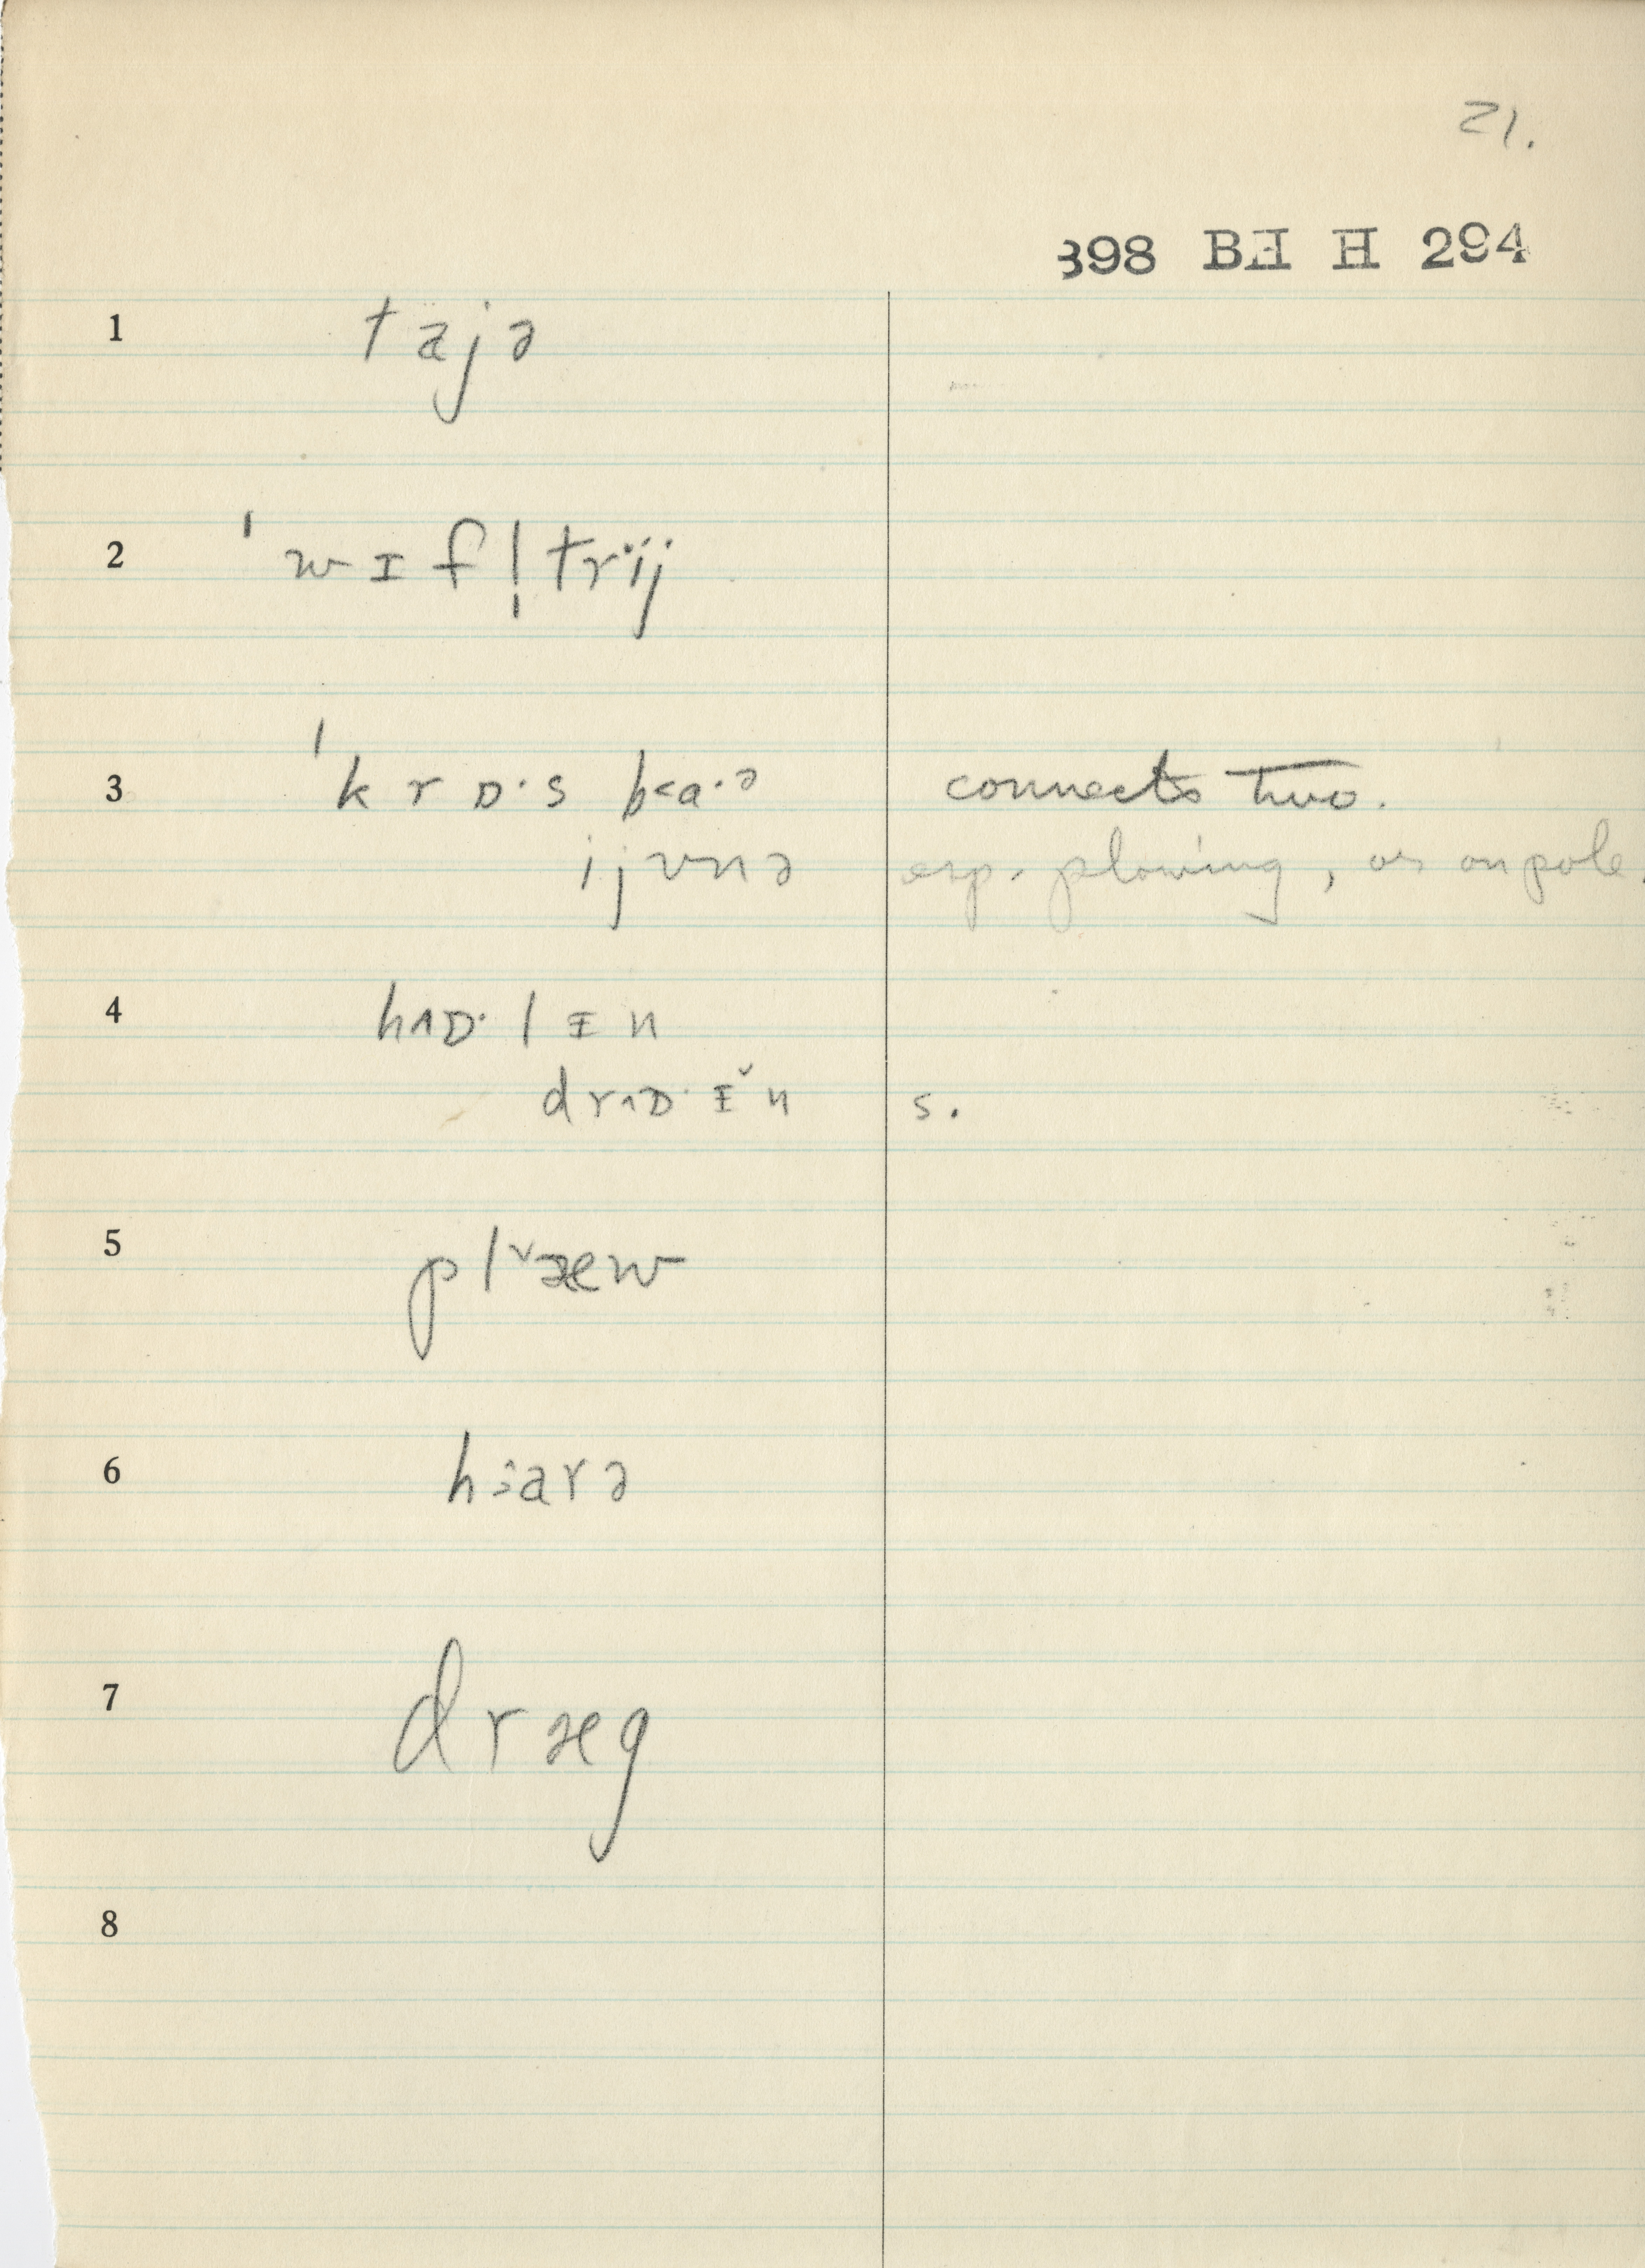 21.
398 BH H 294
1 tajə
2 ˈwɪfl̩trij
3 ˈkrɒ·s b<a·ə connects two.
ijvnə esp. plowing, or on pole.
4 hʌɒ·lɪn
drʌɒ·ɪ̌n s.
5 plˇæw
6 hɜarə
7 dræg
8